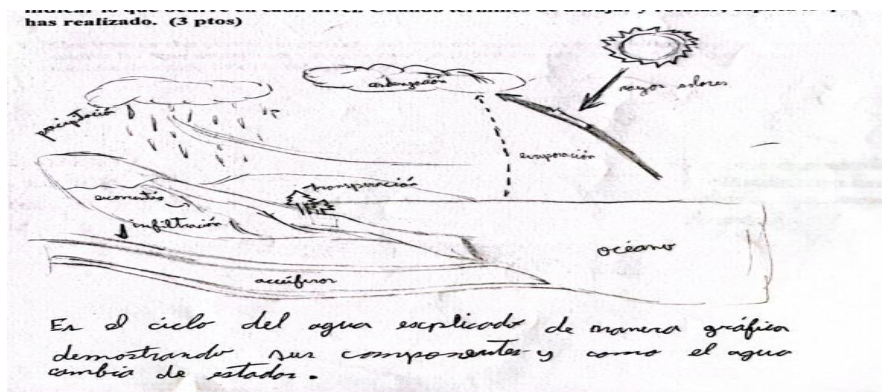 has realizado. (3 ptos)
condensación
rayos solares
precipitación
evaporación
transpiración
infiltración
océano
acuíferos
En el ciclo del agua explicado de manera gráfica
demostrando sus componentes y como el agua
cambia de estados.